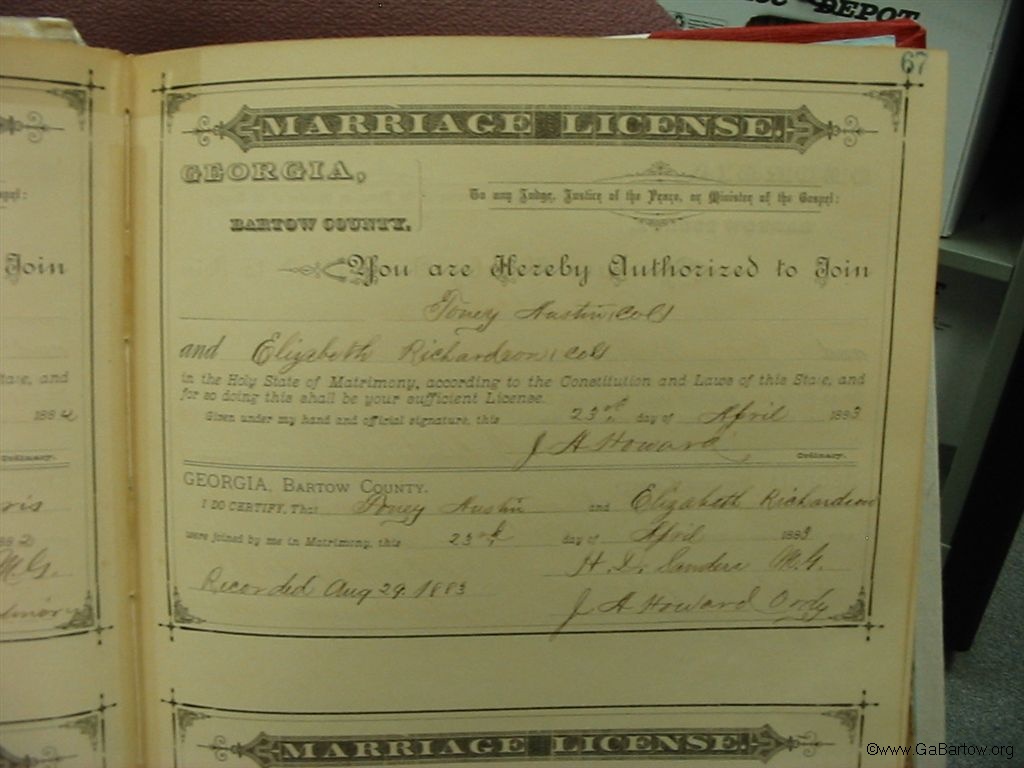 DEPOT
67
MARRIAGE LICENSE.
GEORGIA,
To any Judge, Justice of the Peace, or Minister of the Gospel:
BARTOW COUNTY.
Join
You are Hereby Authorized to Join
Toney Austin, Cold
and Elizabeth Richardson, Cold
State, and
in the Holy State of Matrimony, according to the Constitution and Laws of this State, and
for so doing this shall be your sufficient License.
1882
Given under my hand and official signature, this 23rd day of April 1883
J A Howard
Ordinary.
Ordinary.
GEORGIA, BARTOW COUNTY.
I DO CERTIFY, That Toney Austin and Elizabeth Richardson
were joined by me in Matrimony, this 23rd day of April 1883
H. D. Sanders M.G.
M.G.
Recorded Aug 29. 1883
J A Howard Ordy
MARRIAGE LICENSE.
©www.GaBartow.org